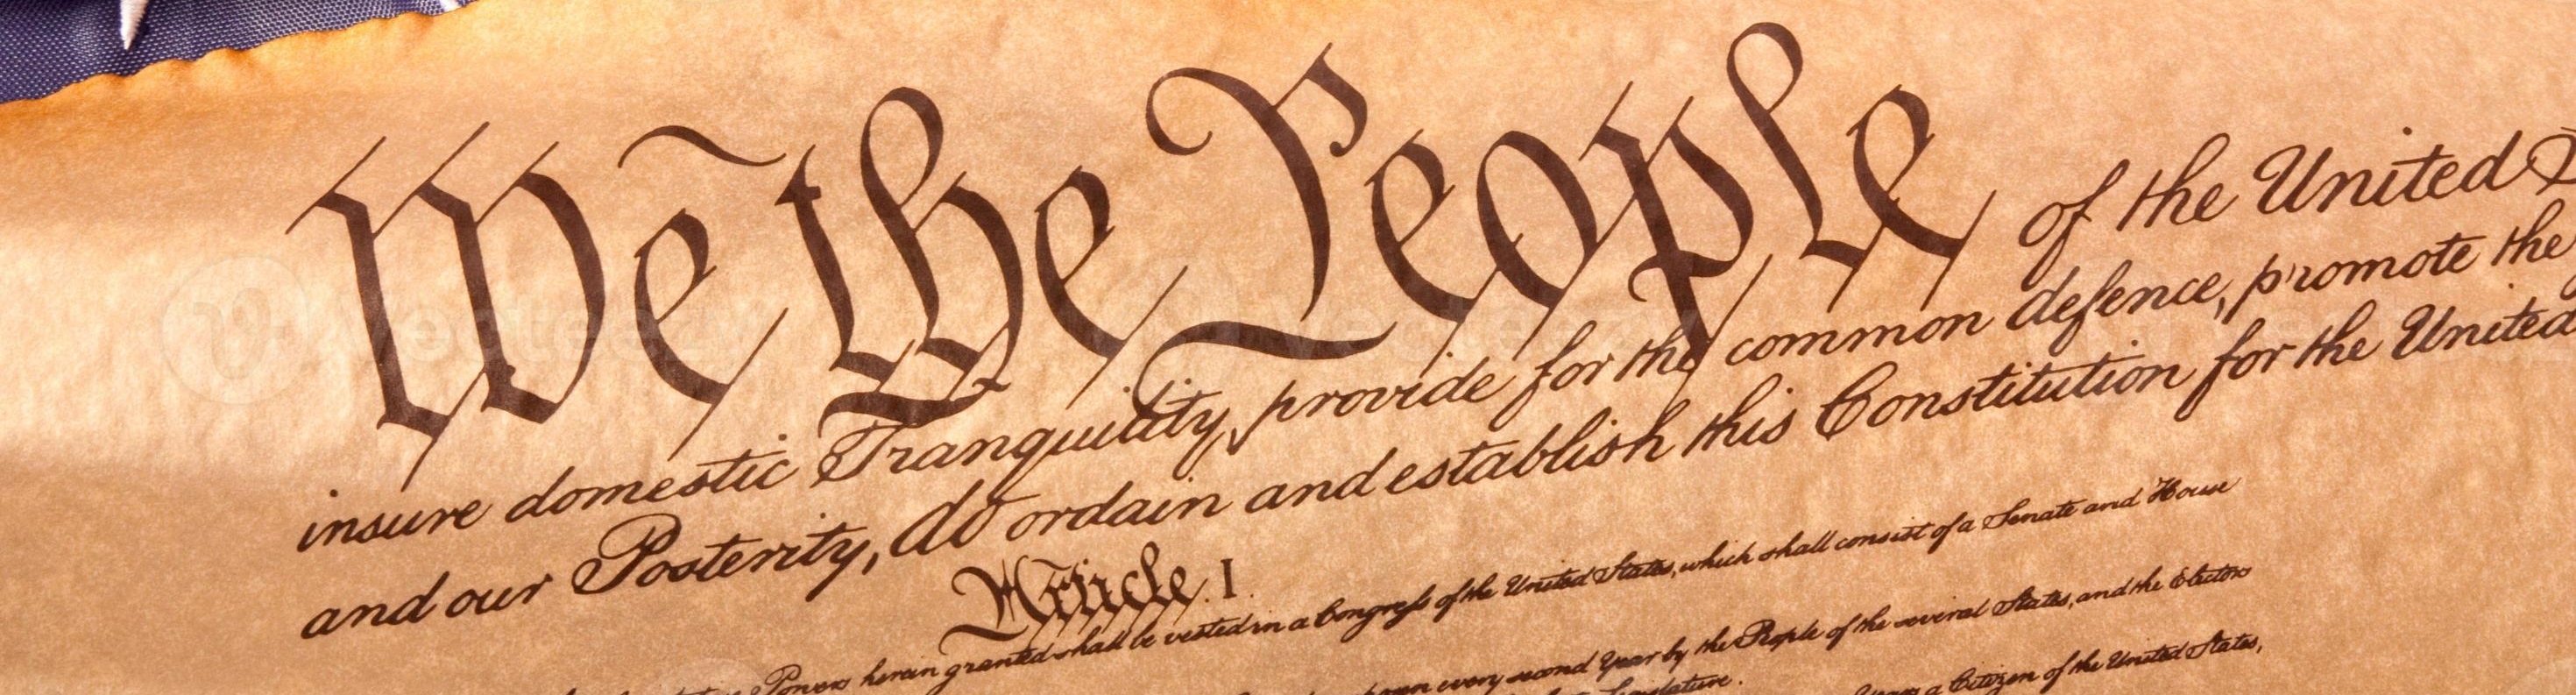 We the People of the United
insure domestic Tranquility, provide for the common defence, promote the
and our Posterity, do ordain and establish this Constitution for the United
Article. I.
Powers herein granted shall be vested in a Congress of the United States, which shall consist of a Senate and House
every second Year by the People of the several States, and the Electors
Legislature.
a Citizen of the United States,
vecteezy
vecteezy